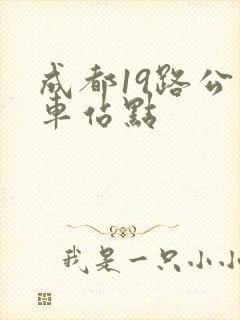 成都19路公
車佔點
我是一只小小